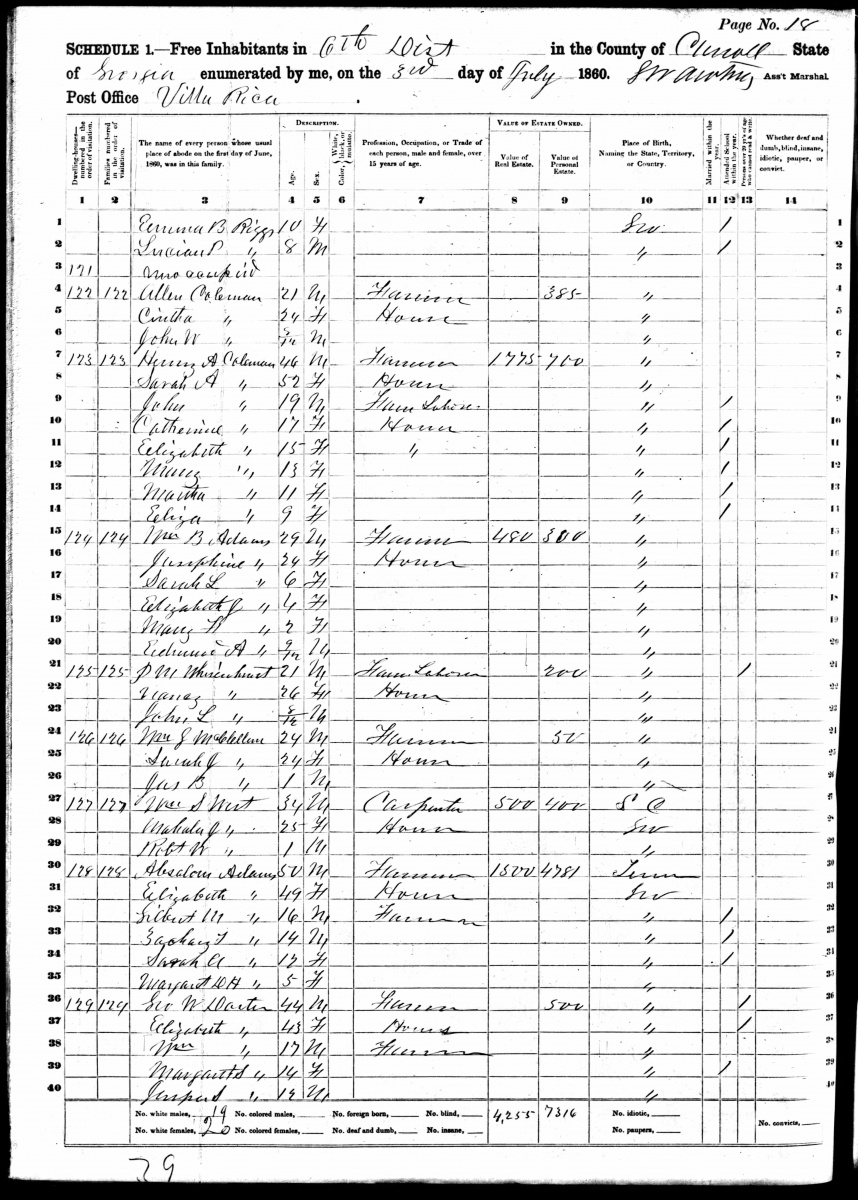 Page No. 18
SCHEDULE 1.—Free Inhabitants in 6th Dist in the County of Carroll State
of Georgia enumerated by me, on the 3rd day of July 1860. Ass't Marshal
Post Office Villa Rica.
Dwelling-house—numbered in the order of visitation.
Families numbered in the order of visitation.
The name of every person whose usual place of abode on the first day of June, 1860, was in this family.
DESCRIPTION.
Age.
Sex.
Color, White, black, or mulatto.
Profession, Occupation, or Trade of each person, male and female, over 15 years of age.
VALUE OF ESTATE OWNED.
Value of Real Estate.
Value of Personal Estate.
Place of Birth, Naming the State, Territory, or Country.
Married within the year.
Attended School within the year.
Persons over 20 y'rs of age who cannot read & write.
Whether deaf and dumb, blind, insane, idiotic, pauper, or convict.
1 2 3 4 5 6 7 8 9 10 11 12 13 14
1 Emma B Riggs 10 F Geo / 1
2 Lucian P " 8 M " / 2
3 121 unoccupied 3
4 122 122 Allen Coleman 21 M Farmer 385 " 4
5 Cintha " 24 F House " 5
6 John W " 3/12 M " 6
7 123 123 Henry A Coleman 46 M Farmer 1775 700 " 7
8 Sarah A " 52 F House " 8
9 John " 19 M Farm Laborer " / 9
10 Catherine " 17 F House " / 10
11 Elizabeth " 15 F " " / 11
12 Mary " 13 F " / 12
13 Martha " 11 F " / 13
14 Eliza " 9 F " / 14
15 124 124 Wm B Adams 29 M Farmer 480 300 " 15
16 Josephine " 24 F House " 16
17 Sarah L " 6 F " 17
18 Elizabeth J " 4 F " 18
19 Mary F " 2 F " 19
20 Edmund A " 9/12 M " 20
21 125 125 P M Whisenhunt 21 M Farm Laborer 200 " / 21
22 Nancy " 26 F House " 22
23 John L " 8/12 M " 23
24 126 126 Wm J McClellan 24 M Farmer 50 " 24
25 Sarah J " 24 F House " 25
26 Jas B " 1 M " 26
27 127 127 Wm S West 34 M Carpenter 500 400 S C 27
28 Mahala J " 25 F House Geo 28
29 Robt W " 1 M " 29
30 128 128 Absalom Adams 50 M Farmer 1500 4781 Tenn 30
31 Elizabeth " 49 F House Geo 31
32 Gilbert M " 16 M Farmer " / 32
33 Zachary T " 14 M " / 33
34 Sarah A " 12 F " / 34
35 Margaret D H " 5 F " 35
36 129 129 Geo W Darter 44 M Farmer 500 " / 36
37 Elizabeth " 43 F House " / 37
38 Wm " 17 M Farmer " 38
39 Margaret S " 14 F " / 39
40 Jasper S " 12 M " 40
No. white males, 19 No. colored males, No. foreign born, No. blind, 4,255 7316 No. idiotic,
No. white females, 20 No. colored females, No. deaf and dumb, No. insane, No. paupers, No. convicts,
39